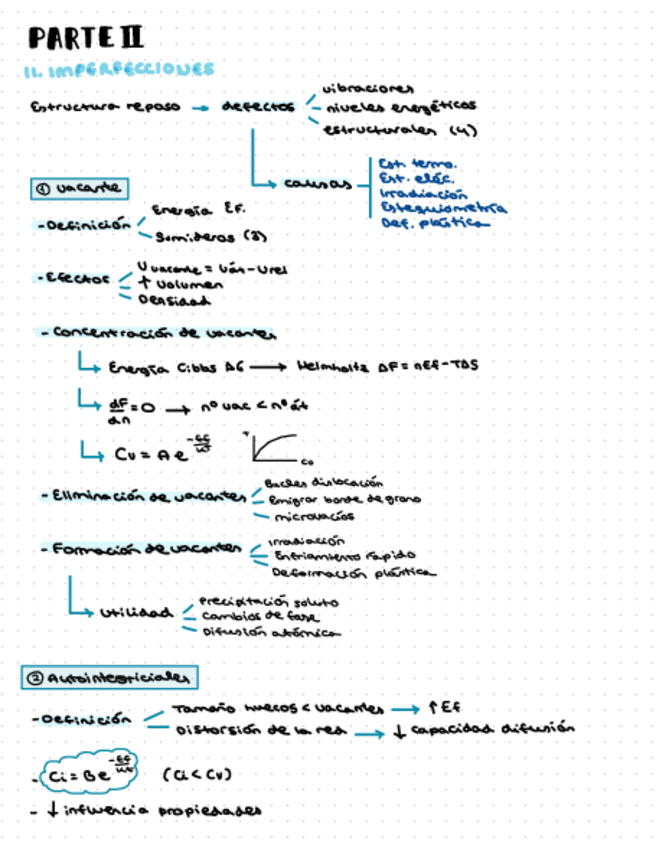 PARTE II
11. IMPERFECCIONES
Estructura reposo → defectos
vibraciones
niveles energéticos
estructurales (4)
causas
Est. termo.
Est. eléc.
Irradiación
Estequiometría
Def. plástica
① Vacante
- Definición
Energía Ef.
Sumideros (3)
- Efectos
U vacante = Uát - Urel
↑ Volumen
Densidad
- Concentración de vacantes
Energía Gibbs ΔG → Helmholtz ΔF = nEf - TΔS
dF/dn = 0 → nº vac < nº át
Cv = A e^(-Ef/kT)
T
Co
- Eliminación de vacantes
Bucles dislocación
Emigrar borde de grano
microvacíos
- Formación de vacantes
Irradiación
Enfriamiento rápido
Deformación plástica
Utilidad
Precipitación soluto
Cambios de fase
Difusión atómica
② Autointersticiales
- Definición
Tamaño huecos < vacantes → ↑ Ef
Distorsión de la red → ↓ capacidad difusión
- Ci = B e^(-Ef/kT) (Ci < Cv)
- ↓ influencia propiedades